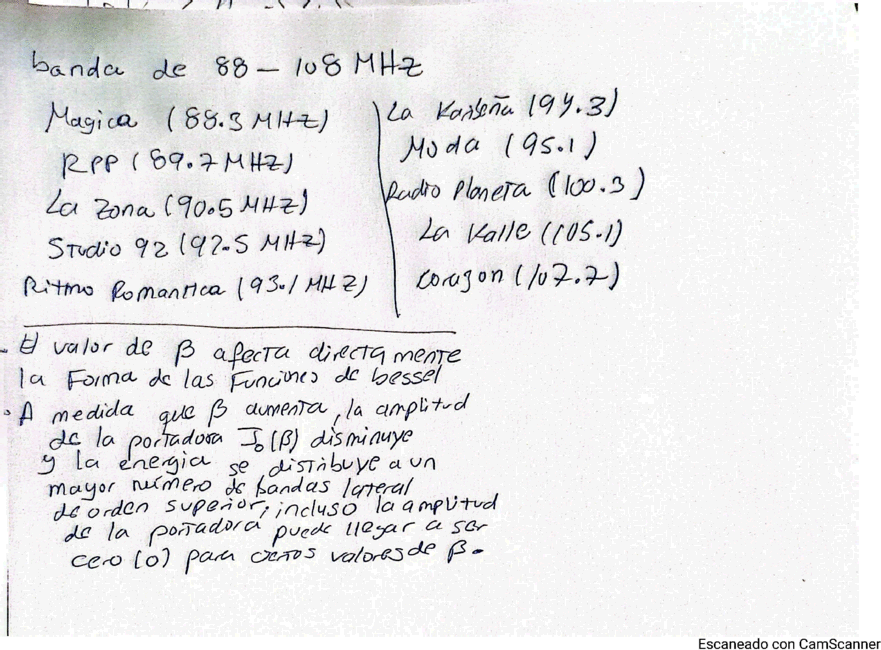 banda de 88 – 108 MHz
Magica (88.3 MHz)
RPP (89.7 MHz)
La Zona (90.5 MHz)
Studio 92 (92.5 MHz)
Ritmo Romantica (93.1 MHz)
La Karibeña (94.3)
Moda (95.1)
Radio Planeta (100.3)
La Kalle (105.1)
Corazon (107.7)
- El valor de β afecta directamente
la Forma de las Funciones de bessel
• A medida que β aumenta, la amplitud
de la portadora J₀(β) disminuye
y la energia se distribuye a un
mayor número de bandas lateral
de orden superior, incluso la amplitud
de la portadora puede llegar a ser
cero (0) para ciertos valores de β.
Escaneado con CamScanner